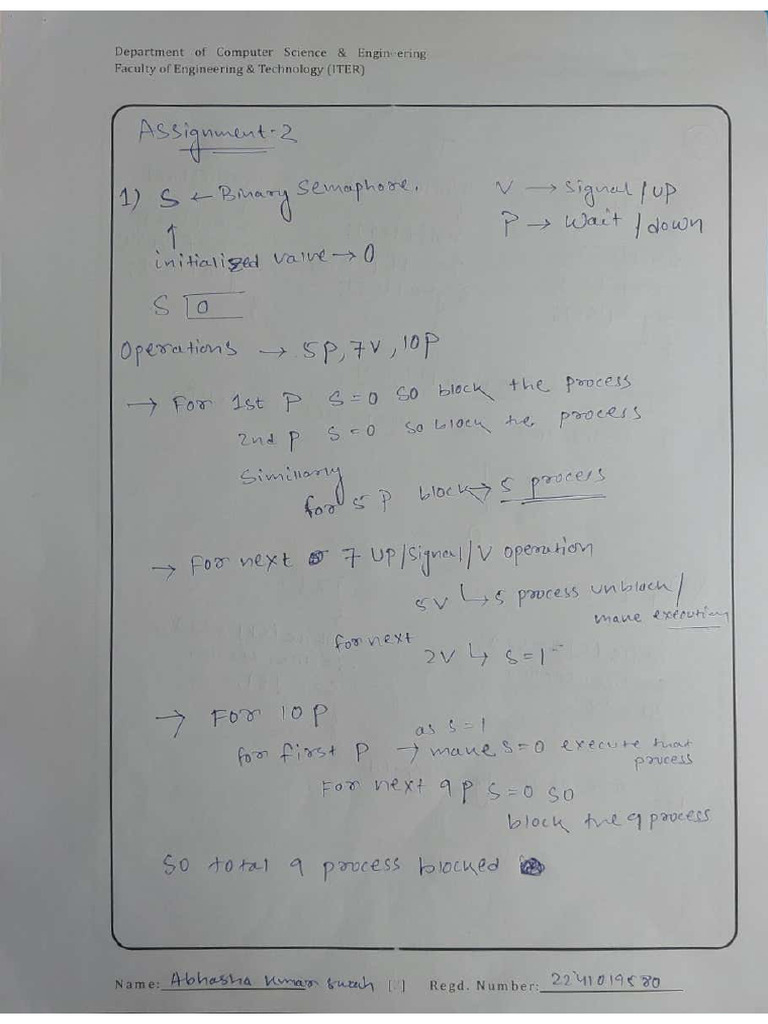 Department of Computer Science & Engineering
Faculty of Engineering & Technology (ITER)
Assignment-2
1) S ← Binary Semaphore. V → Signal / UP
↑ P → Wait / down
initialized value → 0
S 0
Operations → 5P, 7V, 10P
→ For 1st P S=0 so block the process
2nd P S=0 so block the process
Similarly
for 5 P block → 5 process
→ For next 7 UP/Signal/V operation
5V ↳ 5 process unblock /
make execution
for next
2V ↳ S=1
→ For 10 P
as S=1
for first P → make S=0 execute that
process
For next 9P S=0 so
block the 9 process
So total 9 process blocked
Name: Abhasha Kumar Regd. Number: